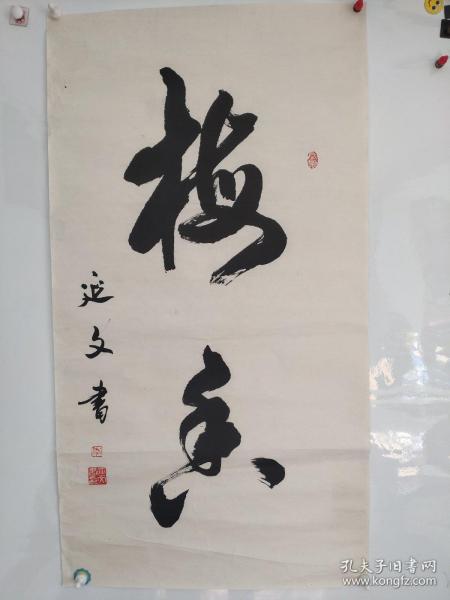 梅香
延文書
孔夫子旧书网
www.kongfz.com